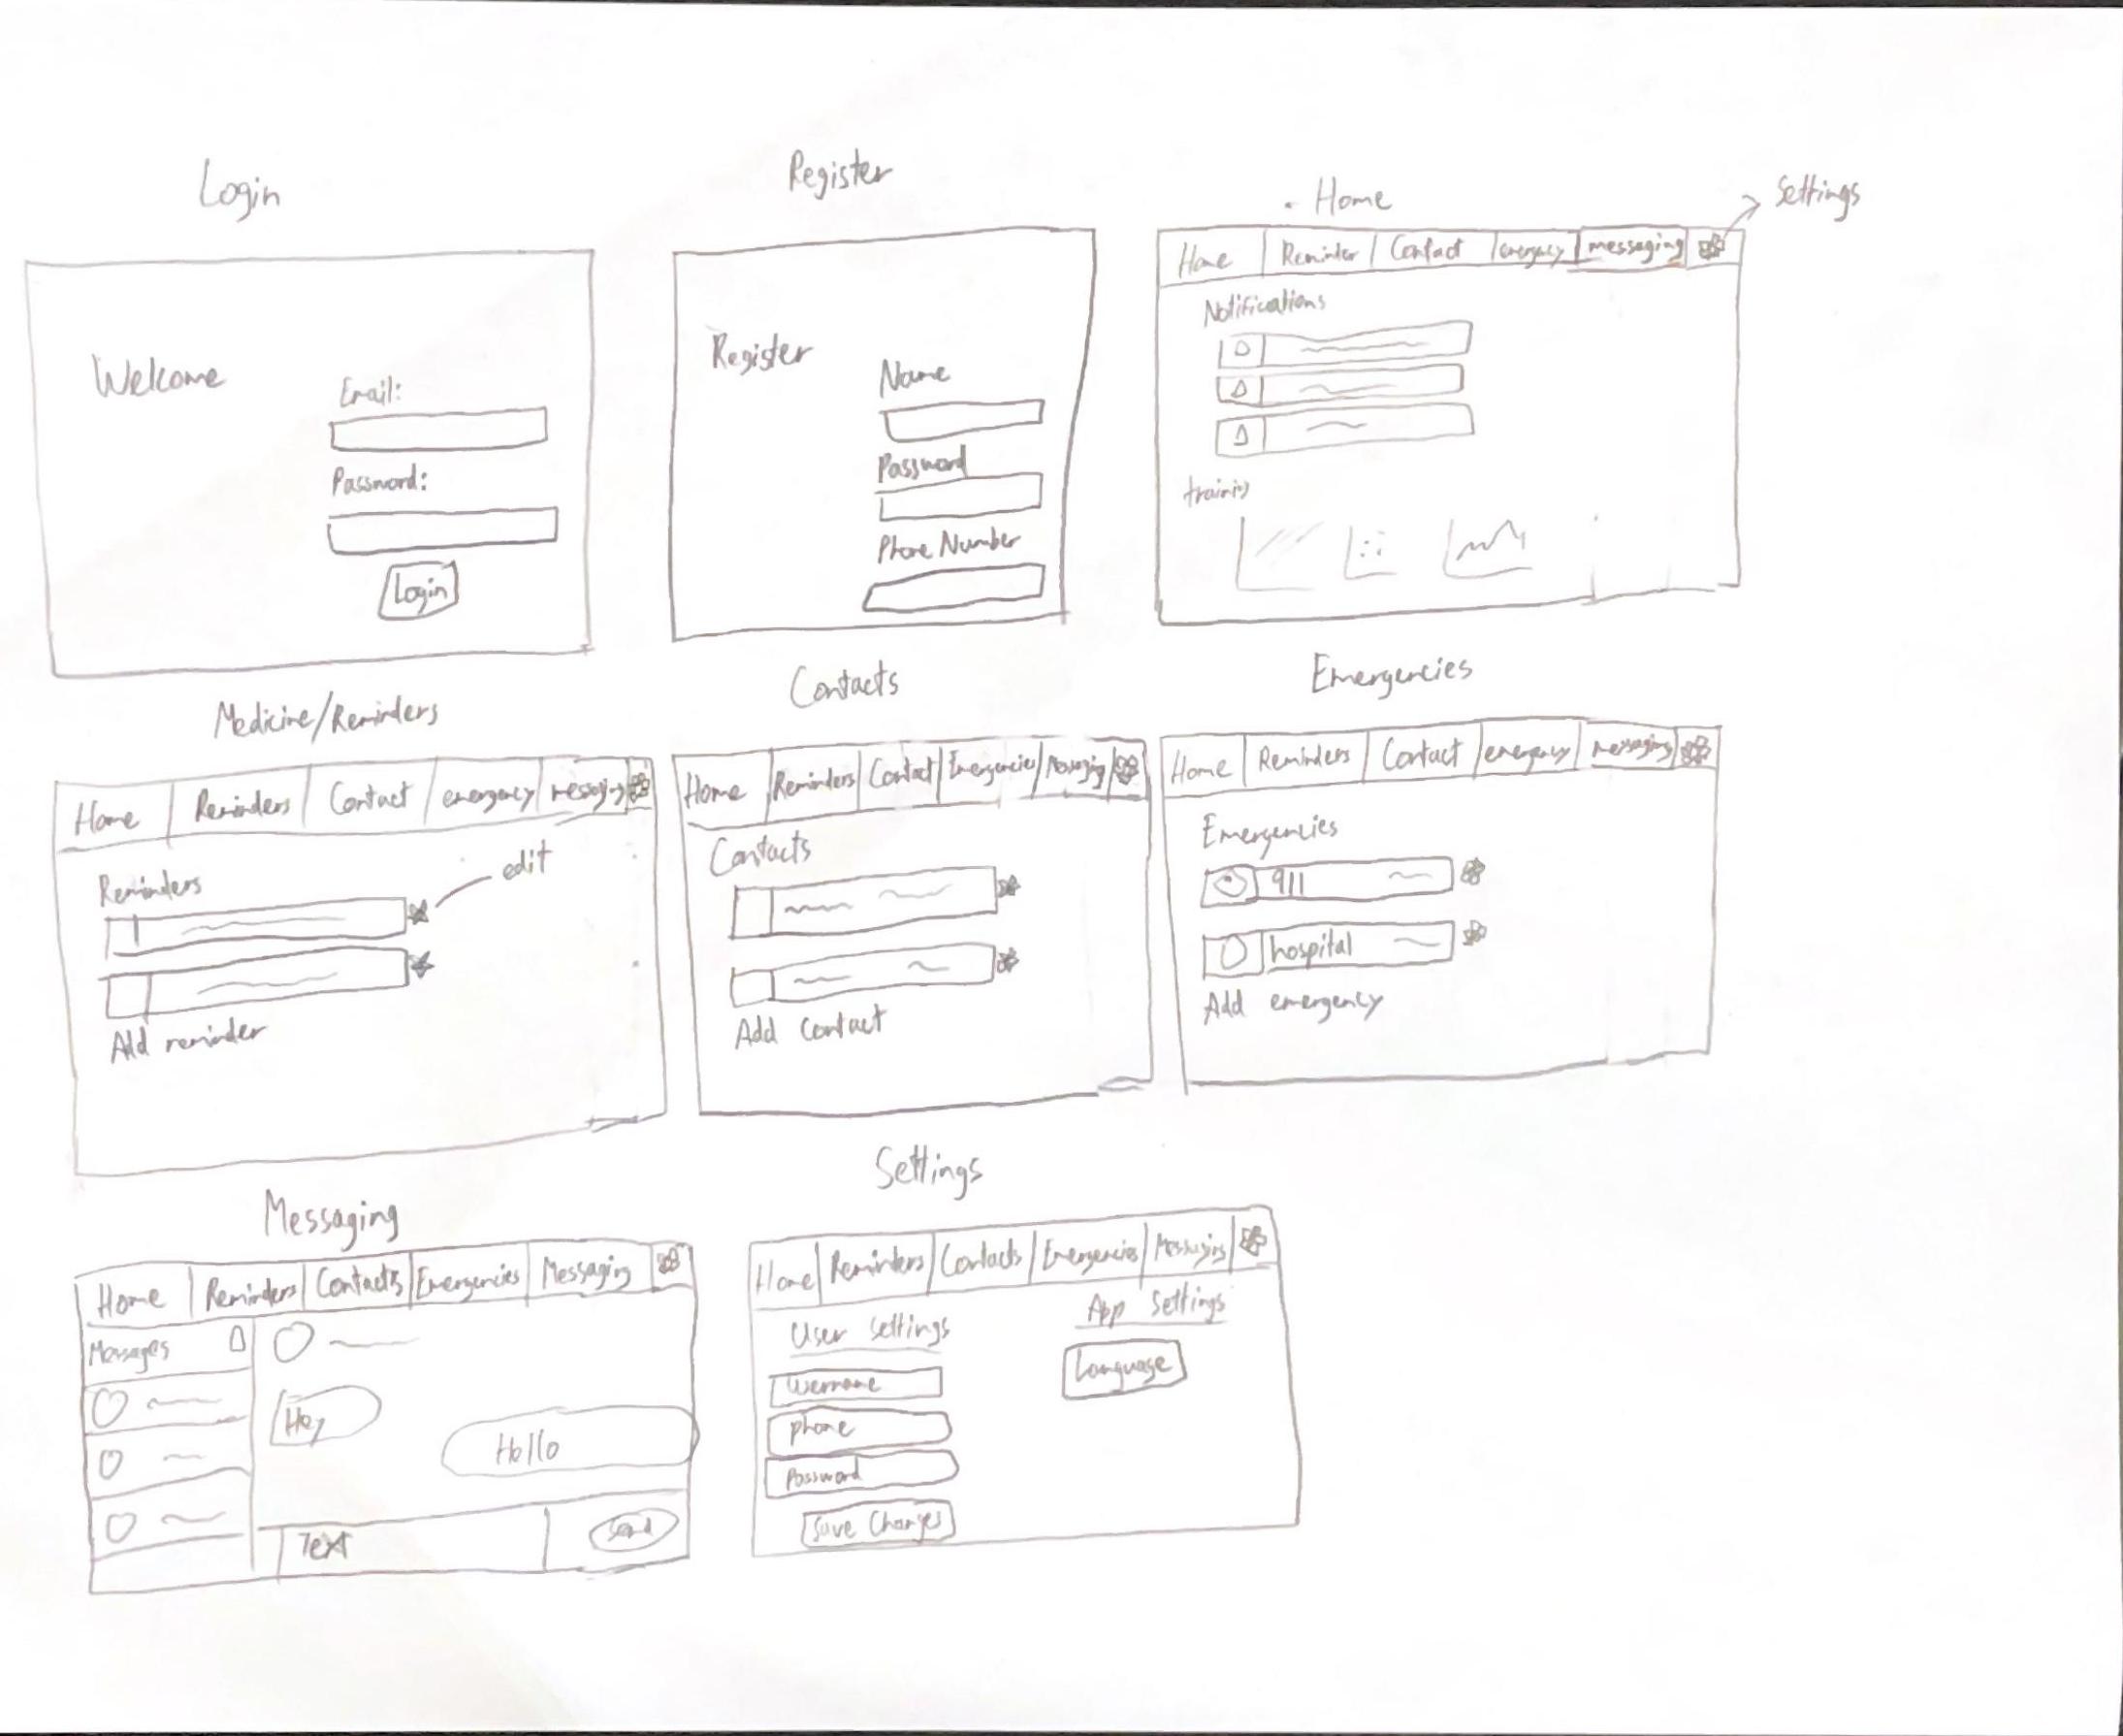 Login
Welcome
Email:
Password:
Login
Register
Register
Name
Password
Phone Number
Home
Settings
Home Reminder Contact emergency messaging
Notifications
Medicine/Reminders
Home Reminders Contact emergency messaging
Reminders
edit
Add reminder
Contacts
Home Reminders Contact Emergencies Messaging
Contacts
Add Contact
Emergencies
Home Reminders Contact emergency messaging
Emergencies
911
hospital
Add emergency
Messaging
Home Reminders Contacts Emergencies Messaging
Messages
Hey
Hello
Text
Send
Settings
Home Reminders Contacts Emergencies Messaging
User settings
App settings
username
Language
phone
Password
Save Changes